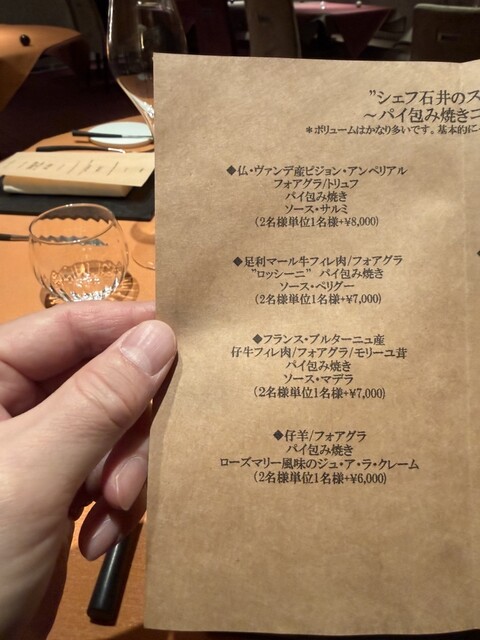 ”シェフ石井のス
～パイ包み焼きコ
＊ボリュームはかなり多いです。基本的に
◆仏・ヴァンデ産ピジョン・アンペリアル
フォアグラ/トリュフ
パイ包み焼き
ソース・サルミ
（2名様単位1名様+¥8,000）
◆足利マール牛フィレ肉/フォアグラ
”ロッシーニ” パイ包み焼き
ソース・ペリグー
（2名様単位1名様+¥7,000）
◆フランス・ブルターニュ産
仔牛フィレ肉/フォアグラ/モリーユ茸
パイ包み焼き
ソース・マデラ
（2名様単位1名様+¥7,000）
◆仔羊/フォアグラ
パイ包み焼き
ローズマリー風味のジュ・ア・ラ・クレーム
（2名様単位1名様+¥6,000）